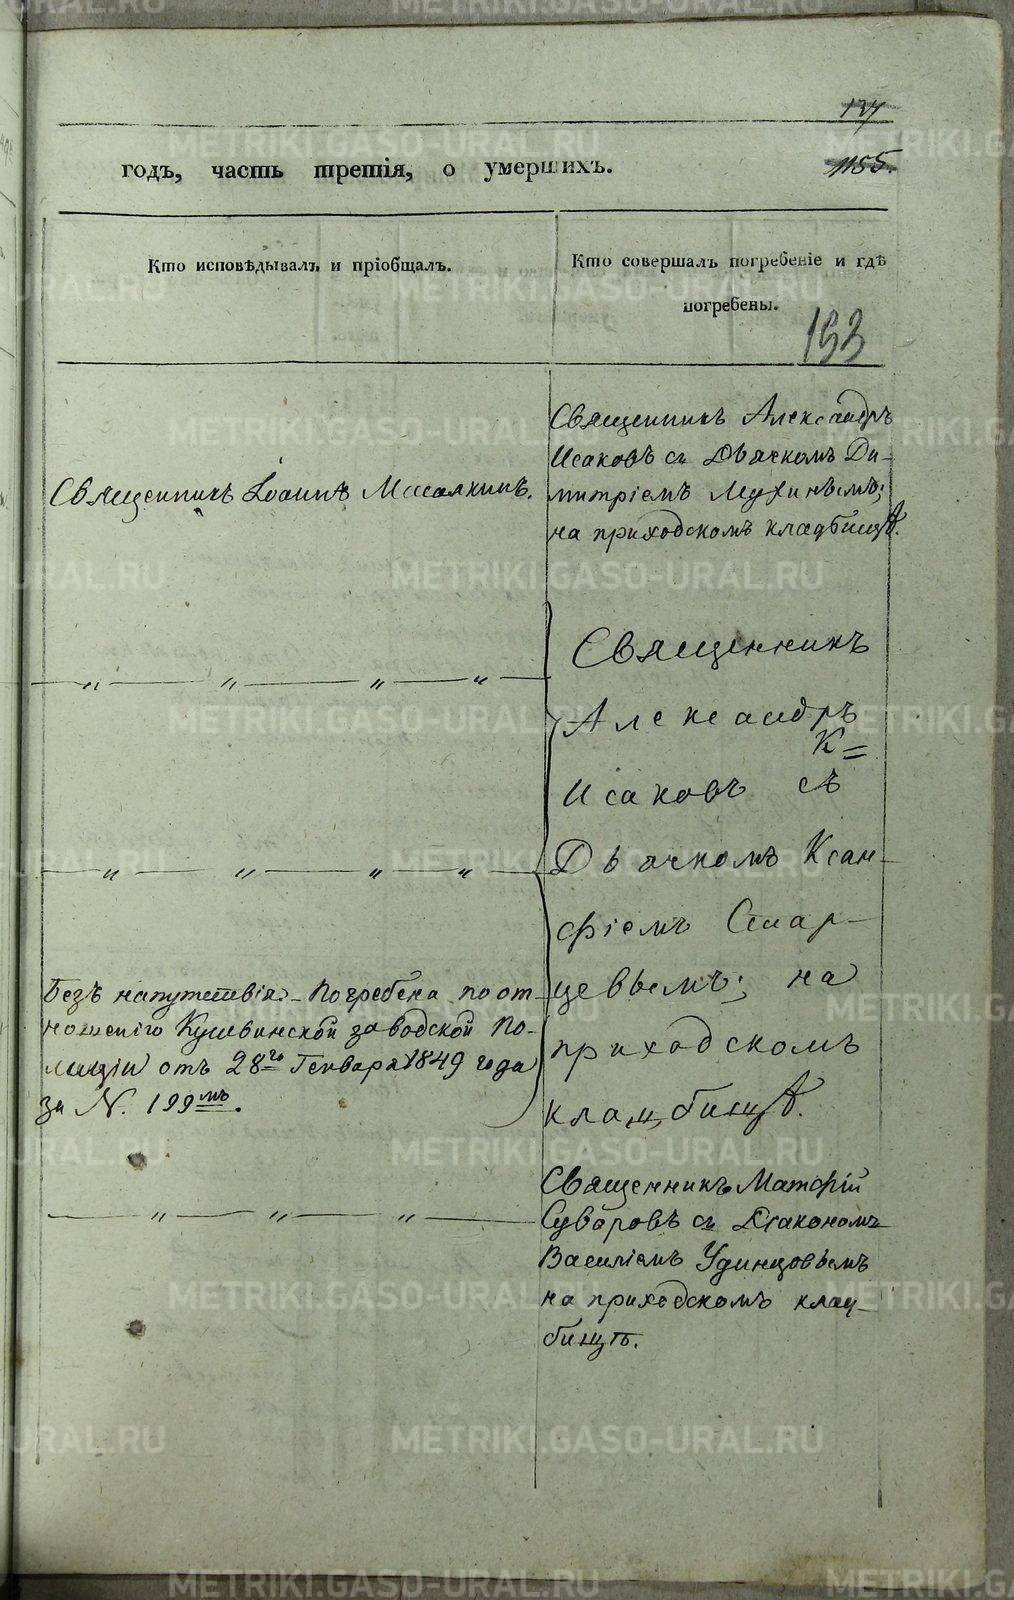 137
1155.
годъ, часть третія, о умершихъ.
Кто исповѣдывалъ и пріобщалъ.
Кто совершалъ погребеніе и гдѣ
погребены.
153
Священникъ Іоаннъ
Священникъ Александръ
Исаковъ съ Дьячкомъ Ди-
митріемъ Мухинымъ;
на приходскомъ кладбищѣ.
— „ — „ — „ — „ —
— „ — „ — „ — „ —
Священникъ
Александръ
К=
Исаковъ съ
Дьячкомъ Ксан-
фіемъ Стар-
цевымъ; на
приходскомъ
кладбищѣ.
Безъ напутствія. Погребена по от-
ношенію Кушвинской заводской По-
лиціи отъ 28го Генваря 1849 года
за N. 199мъ.
— „ — „ — „ —
Священникъ Матфій
Суворовъ съ Діакономъ
Василіемъ Удинцовымъ
на приходскомъ клад-
бищѣ.
METRIKI.GASO-URAL.RU